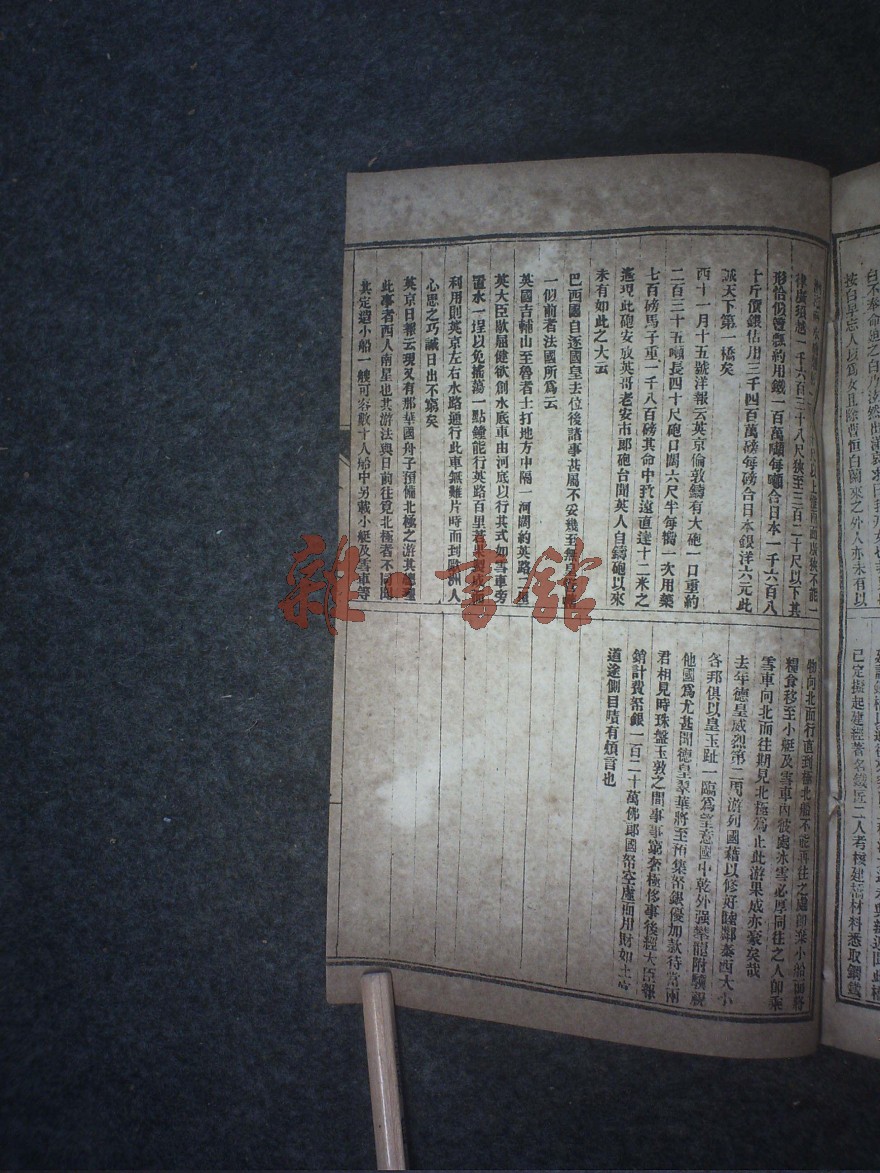 律橫頭總一千六百三十八尺狹至三百二十尺以下其
形恰似覆瓢約用鐵一百萬噸每噸合日本一千六百八
十斤價銀估用三千四百萬磅每磅合日本銀洋六元此
誠天下第一橋矣
西十一月十五號洋報云英京倫敦鑄有大砲一口重約
二百三十五噸長四十尺砲口闊六尺半每燭一次用藥
七百磅馬子重一千八百磅其命中致遠直達十二米之
遙現此砲安放英哥老安市郎砲台聞英人自鑄砲以來
未有如此之大云
巴西國自逐國皇去位後諸事甚屬不妥幾至無
一似前者法國所為云
英國吉輔山至魯者土打地方中隔一河闊約英路
英大臣歐屈健欲創水底車由河底以行其式如雪車旁
置水一埕以免搖蕩一點鐘能行英路百里若果製成
利用則英京左右水路通行此車無難片時而到歐洲人
心思之巧誠日出不窮矣
英京日報云現又有那華國舟子預備北極之游其總
此事者西人南星也其游法與日前往覓北極者不同因
其定造小船一艘可容數十人船中另載小艇及雪車等
物向北而行直到極北船不能再往之處即棄小船而將
糧食移至小艇及雪車內彼處冰雪必厚同往之人即乘
雪車向北而往期見北極為止此游果成亦豪矣哉
去年德皇威烈第二馬游列國藉以修好睦鄰泰西大小
各邦俱以皇玉趾一臨為望意國中乾外强攀龍附驥視
他國為尤甚聞德皇翠華將至預集帑銀優加款待當兩
君相見時珠盤玉敦之間事事窮奢極侈事後經大臣報
銷計費帑銀一百二十萬佛郎國帑空虛而用財如土
道途側目嘖有煩言也
按白早忘人以為女且除曹恒白蘭來之外人亦未有以
已定擬起建經著名鐵匠二人考核建橋材料悉取鋼鐵
雜·書館